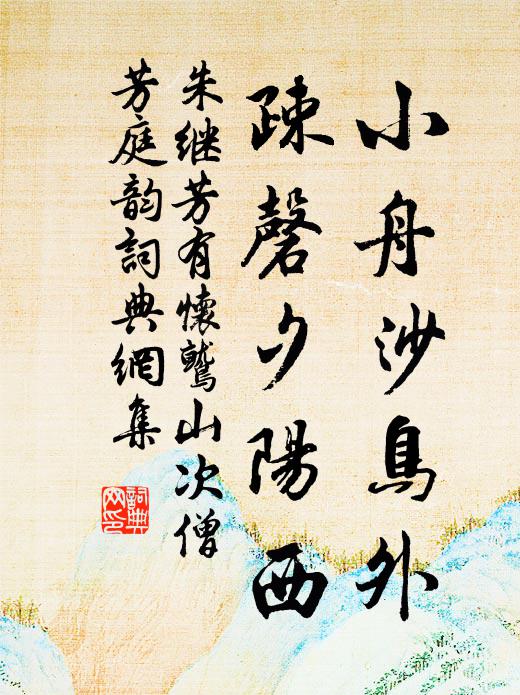 小舟沙鳥外
疎磬夕陽西
朱继芳有懷鷲山次僧
芳庭韵詞典網集
詞典网印